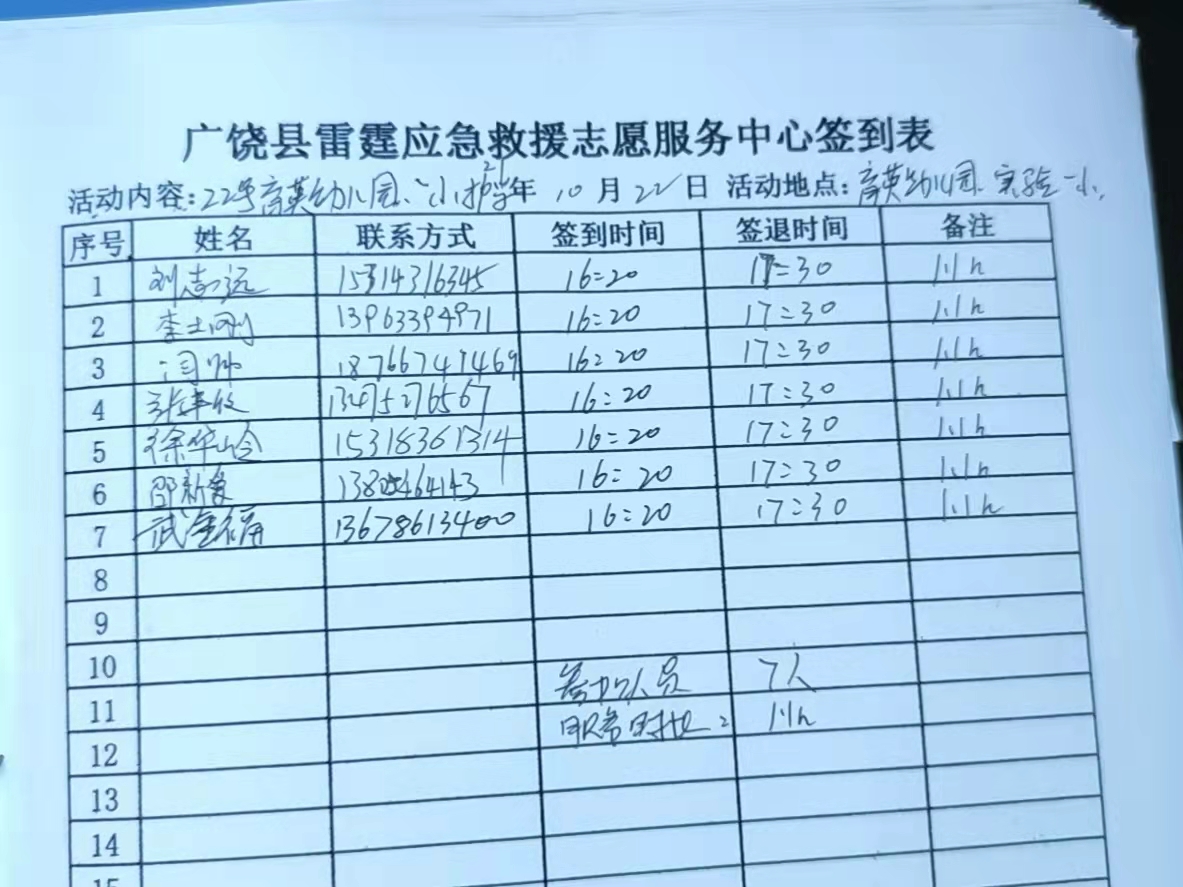 广饶县雷霆应急救援志愿服务中心签到表
活动内容:22号育英幼儿园、一小护学 21年 10月22日 活动地点:育英幼儿园、实验一小
序号 姓名 联系方式 签到时间 签退时间 备注
1 刘志远 15314316345 16:20 17:30 1.1h
2 李士刚 13963394971 16:20 17:30 1.1h
3 闫帅 18766747469 16:20 17:30 1.1h
4 张丰收 13475276567 16:20 17:30 1.1h
5 徐华岭 15318361314 16:20 17:30 1.1h
6 邵新爱 16:20 17:30 1.1h
7 武金福 13678613400 16:20 17:30 1.1h
8
9
10
参加人员 7人
11
服务时长: 1.1h
12
13
14
15